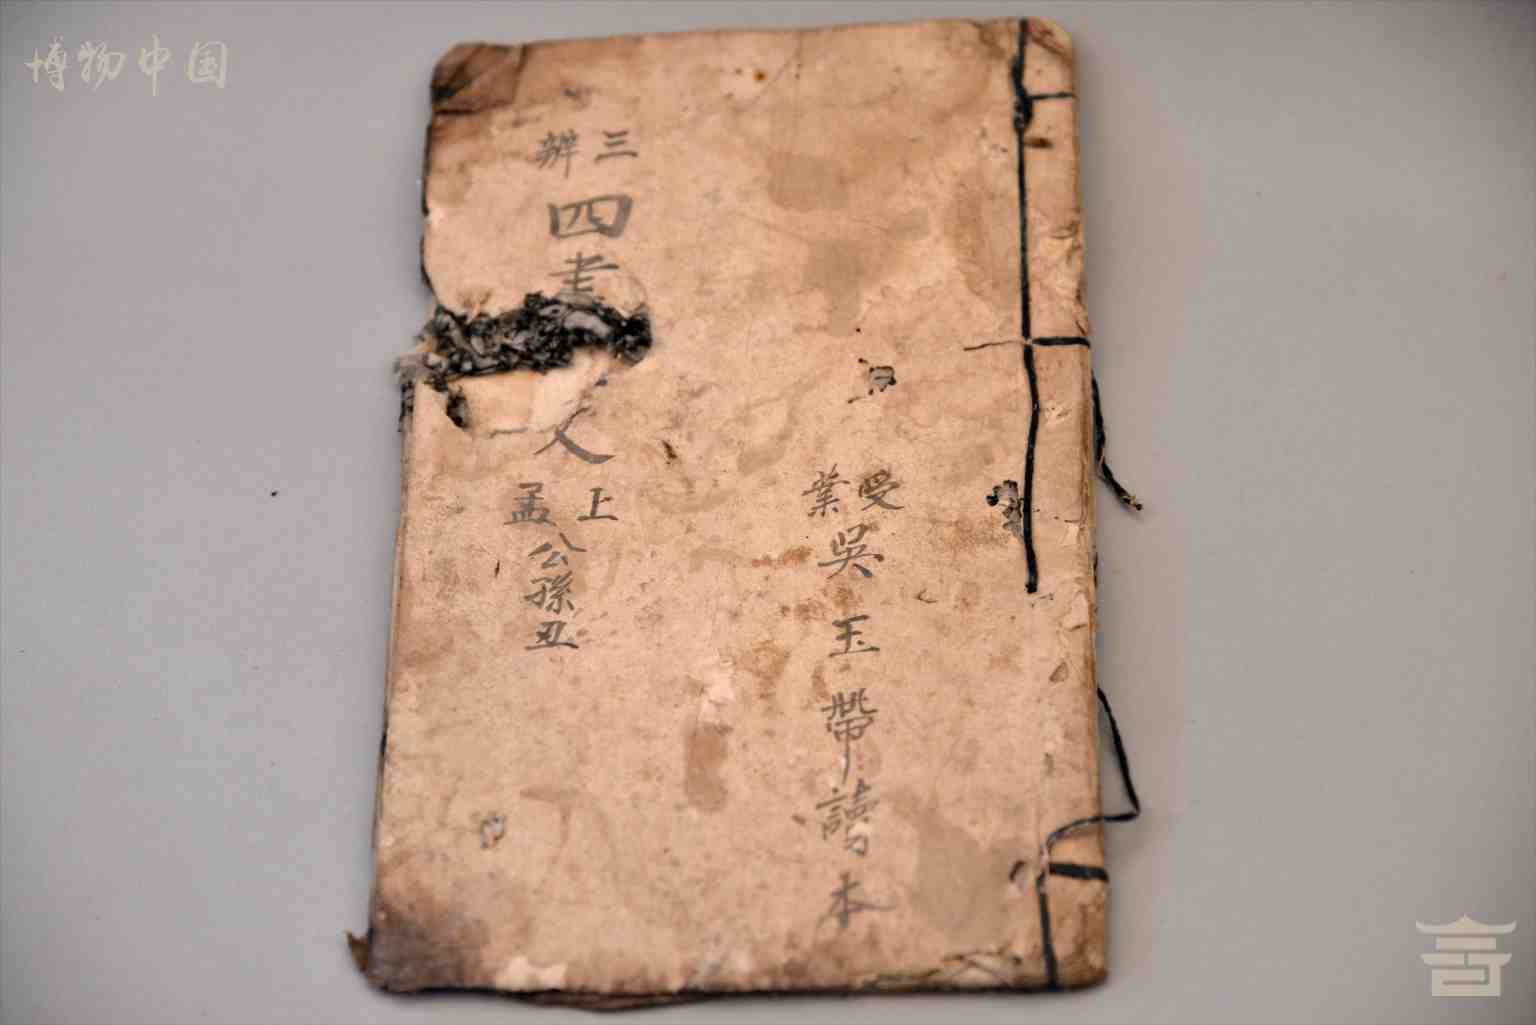 博物中国
受業
吳玉帶讀本
三辨
四書
文
上孟
公孫丑